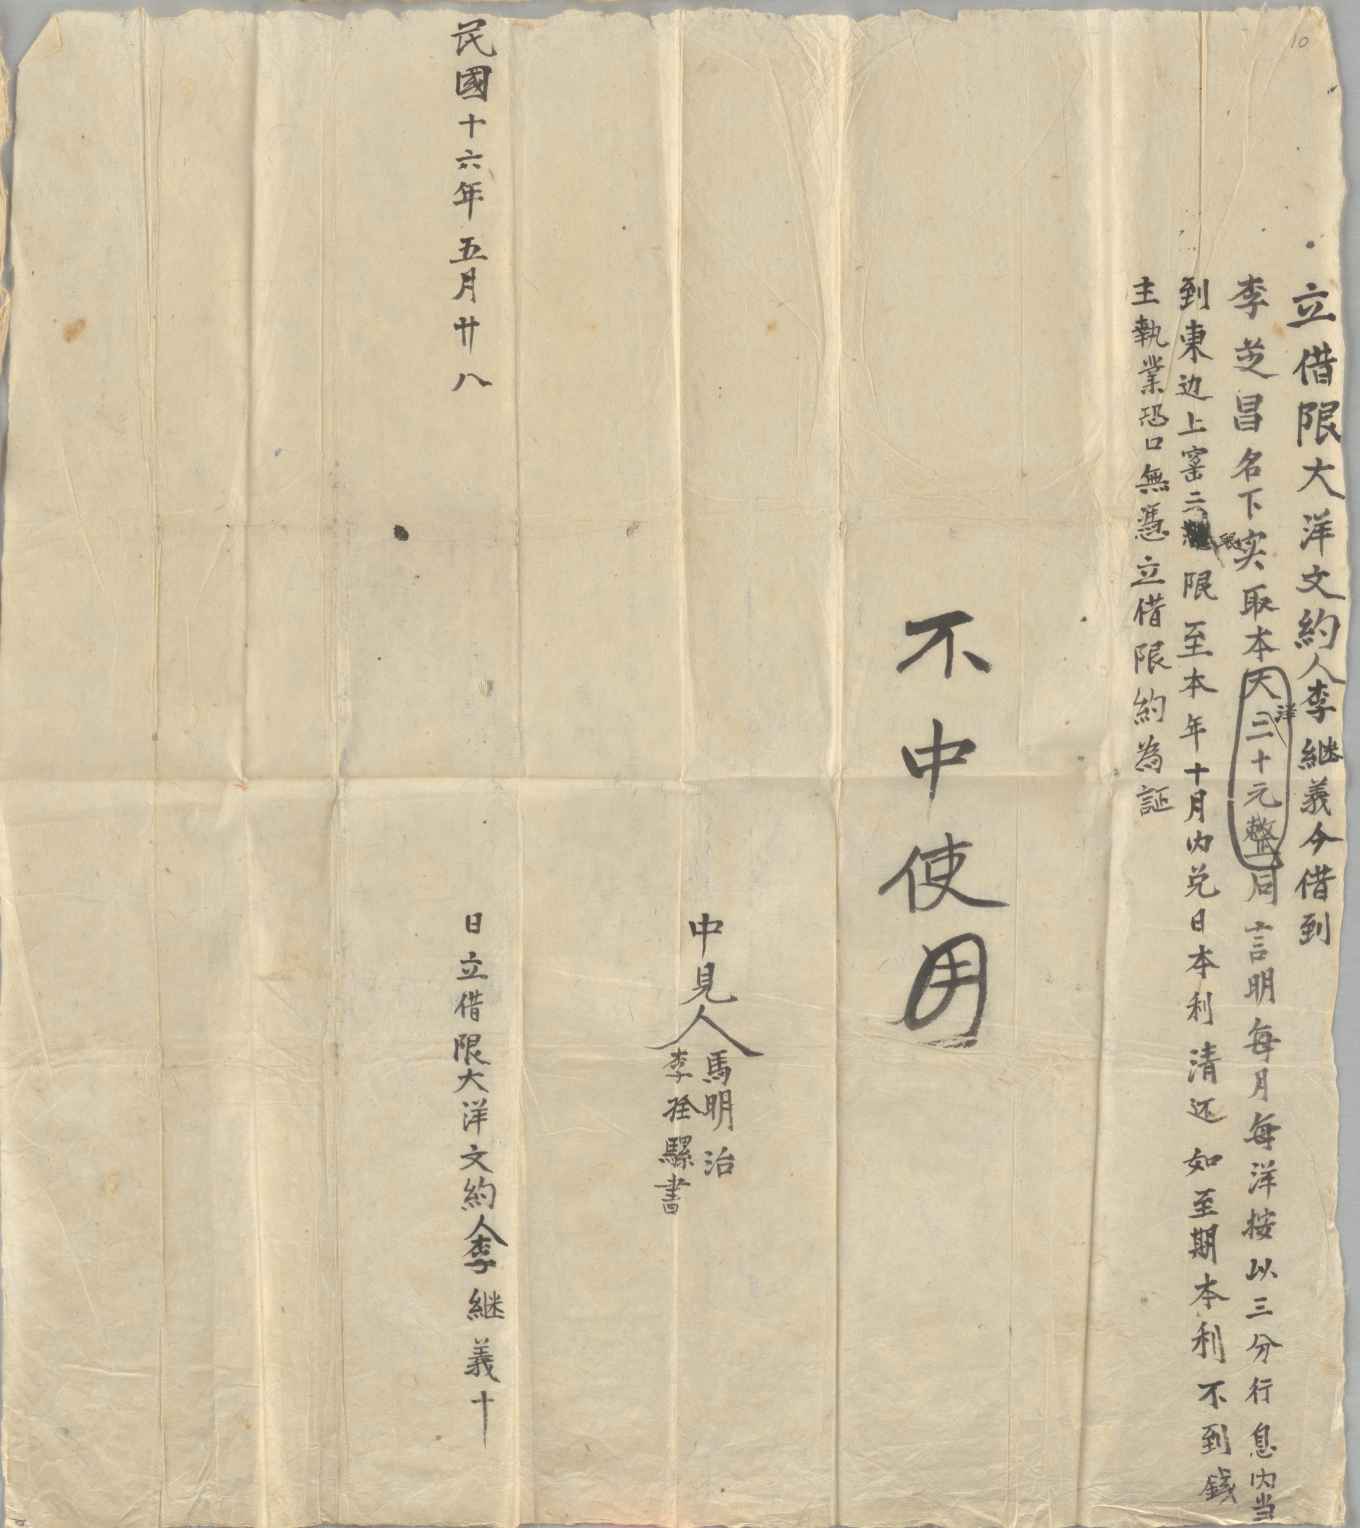 10
立借限大洋文約人李継義今借到
李芝昌名下实取本大洋三十元整同言明每月每洋按以三分行息内当
到東边上窑二眼限至本年十月内兑日本利清还如至期本利不到錢
主執業恐口無憑立借限約為証
不中使用
中見人
馬明治
李拴騾書
民國十六年五月廿八日立借限大洋文約人李継義十